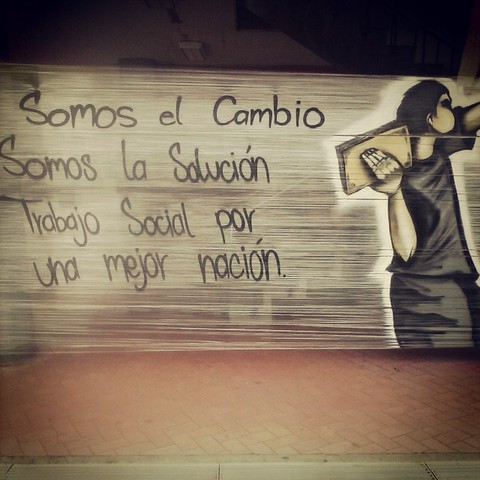 Somos el Cambio
Somos la Solución
Trabajo Social por
una mejor nación.